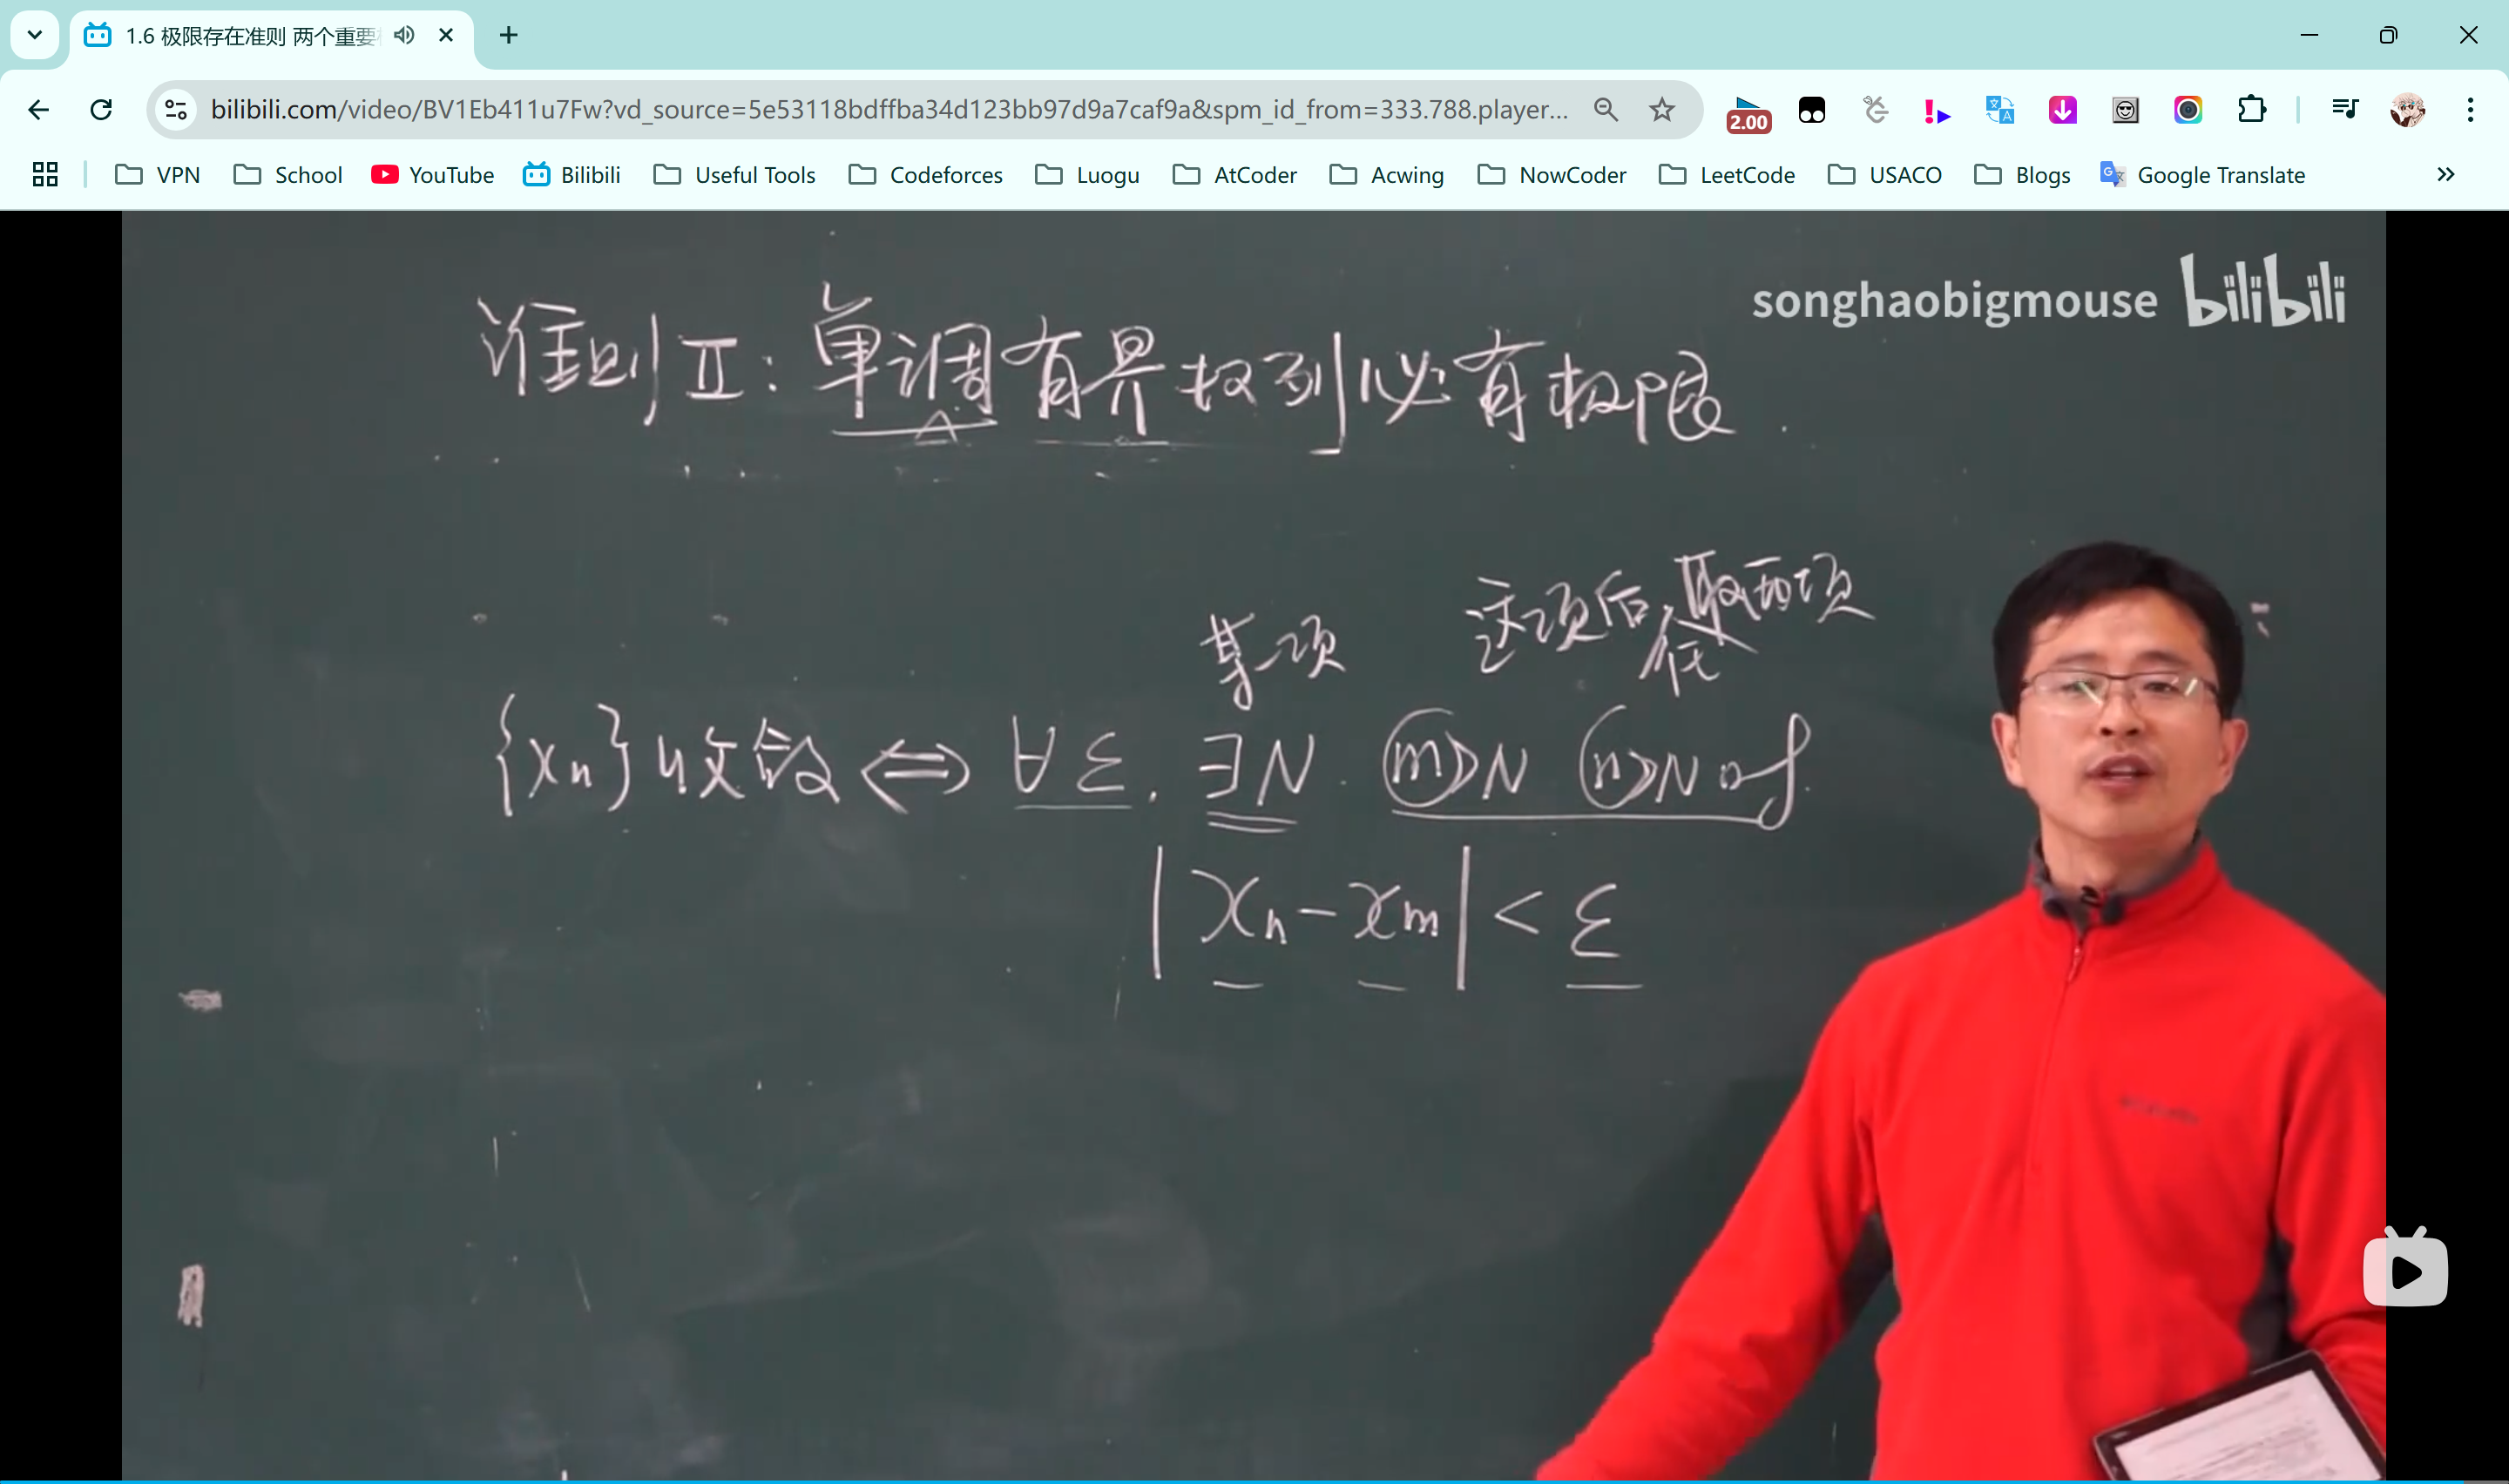 1.6 极限存在准则 两个重要
bilibili.com/video/BV1Eb411u7Fw?vd_source=5e53118bdffba34d123bb97d9a7caf9a&spm_id_from=333.788.player...
2.00
VPN School YouTube Bilibili Useful Tools Codeforces Luogu AtCoder Acwing NowCoder LeetCode USACO Blogs Google Translate
songhaobigmouse bilibili
准则Ⅱ：单调有界数列必有极限.
某项 这项后,任取两项
{xn}收敛⇔∀ε, ∃N. m>N n>N 时
|xn-xm|<ε